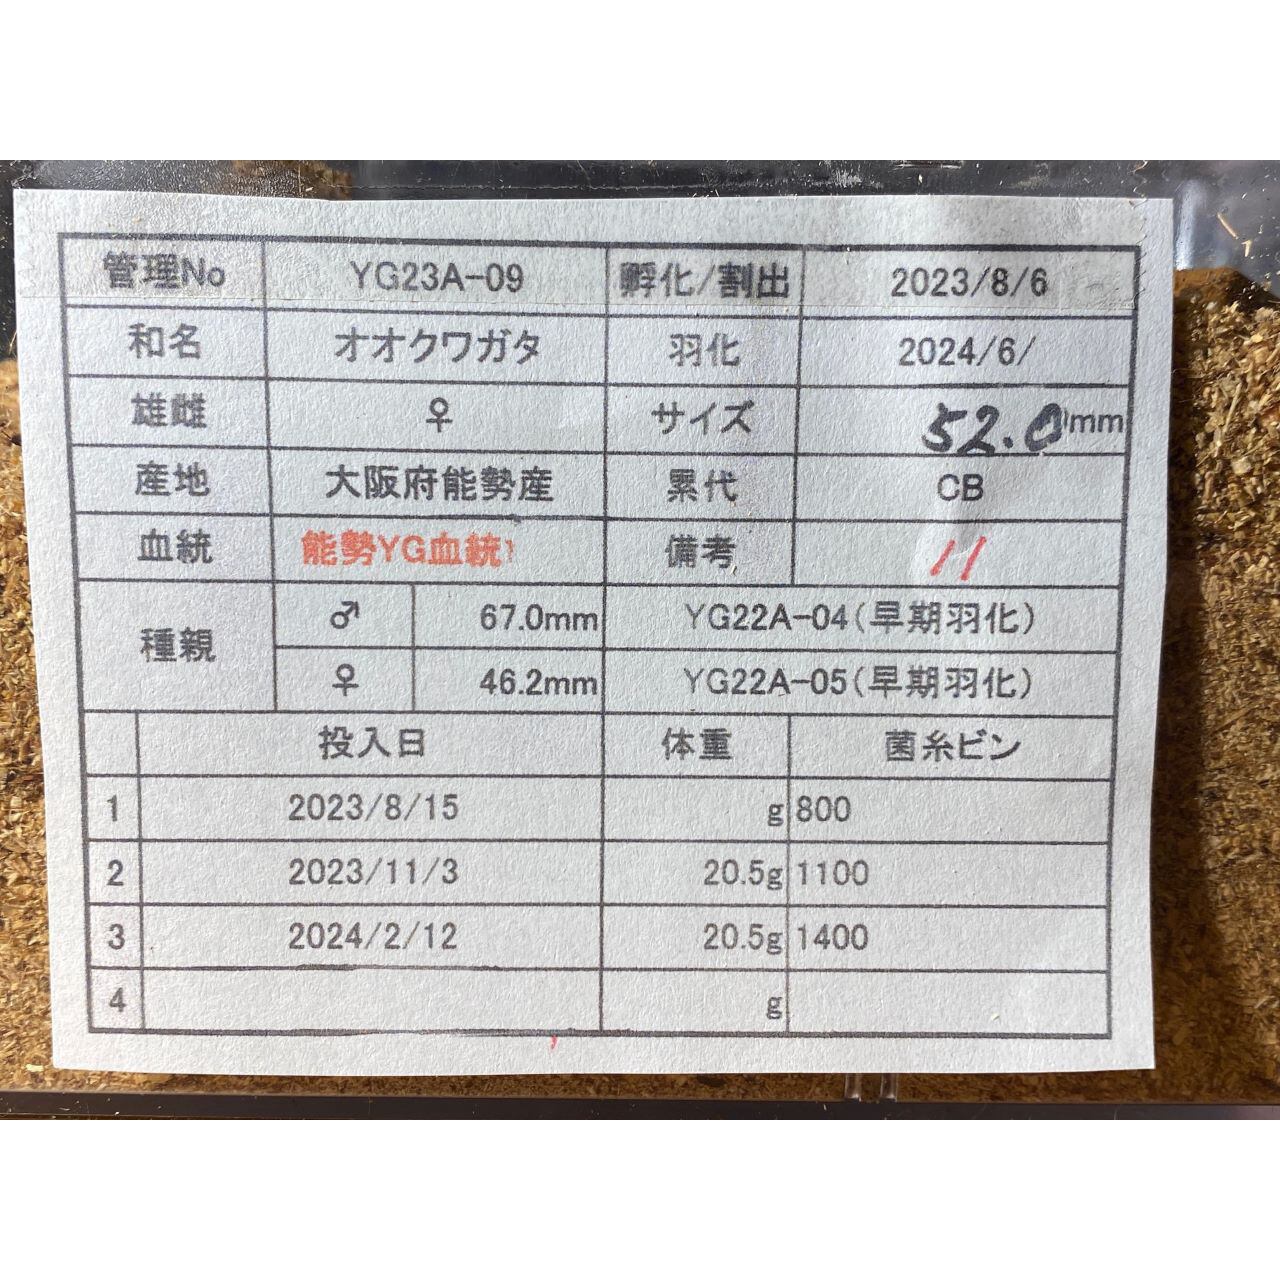 管理No YG23A-09 孵化/割出 2023/8/6
和名 オオクワガタ 羽化 2024/6/
雄雌 ♀ サイズ 52.0mm
産地 大阪府能勢産 累代 CB
血統 能勢YG血統 備考 11
種親 ♂ 67.0mm YG22A-04(早期羽化)
♀ 46.2mm YG22A-05(早期羽化)
投入日 体重 菌糸ビン
1 2023/8/15 g 800
2 2023/11/3 20.5g 1100
3 2024/2/12 20.5g 1400
4 g